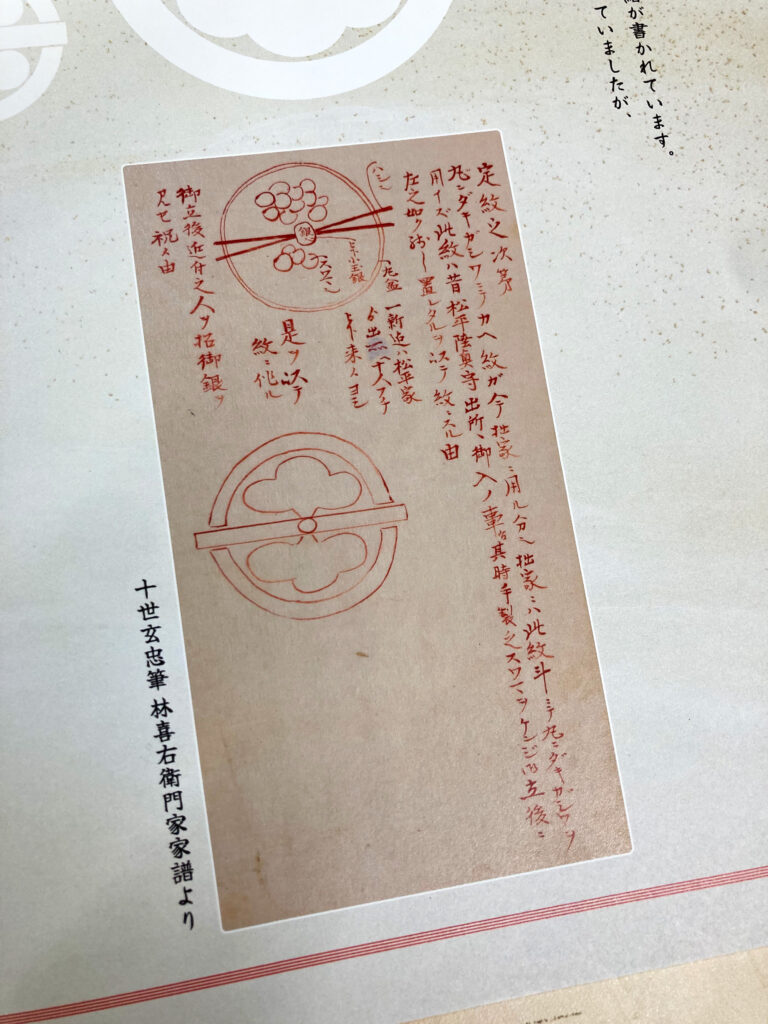 絵が書かれています。
ていましたが、
定紋之次第
丸ニダキガシワニテカヘ紋が今拙家ニ用ル分ヘ拙家ニハ此紋斗ニテ丸ニダキガシワヲ
用イズ此紋ハ昔松平陰真守出所、御入ノ
其時手製之スワマヲ
立後ニ
左之如ク
置レタルヲ以テ紋ニスル由
ハシ
銀
小玉銀
スワマ
丸盆
一新迄ハ松平家
ゟ出
ト来人ヨシ
是ヲ以テ
紋ニ作ル
御立後近付之人ヲ招御銀ヲ
見セ祝ヘ由
十世玄忠筆 林喜右衛門家家譜より